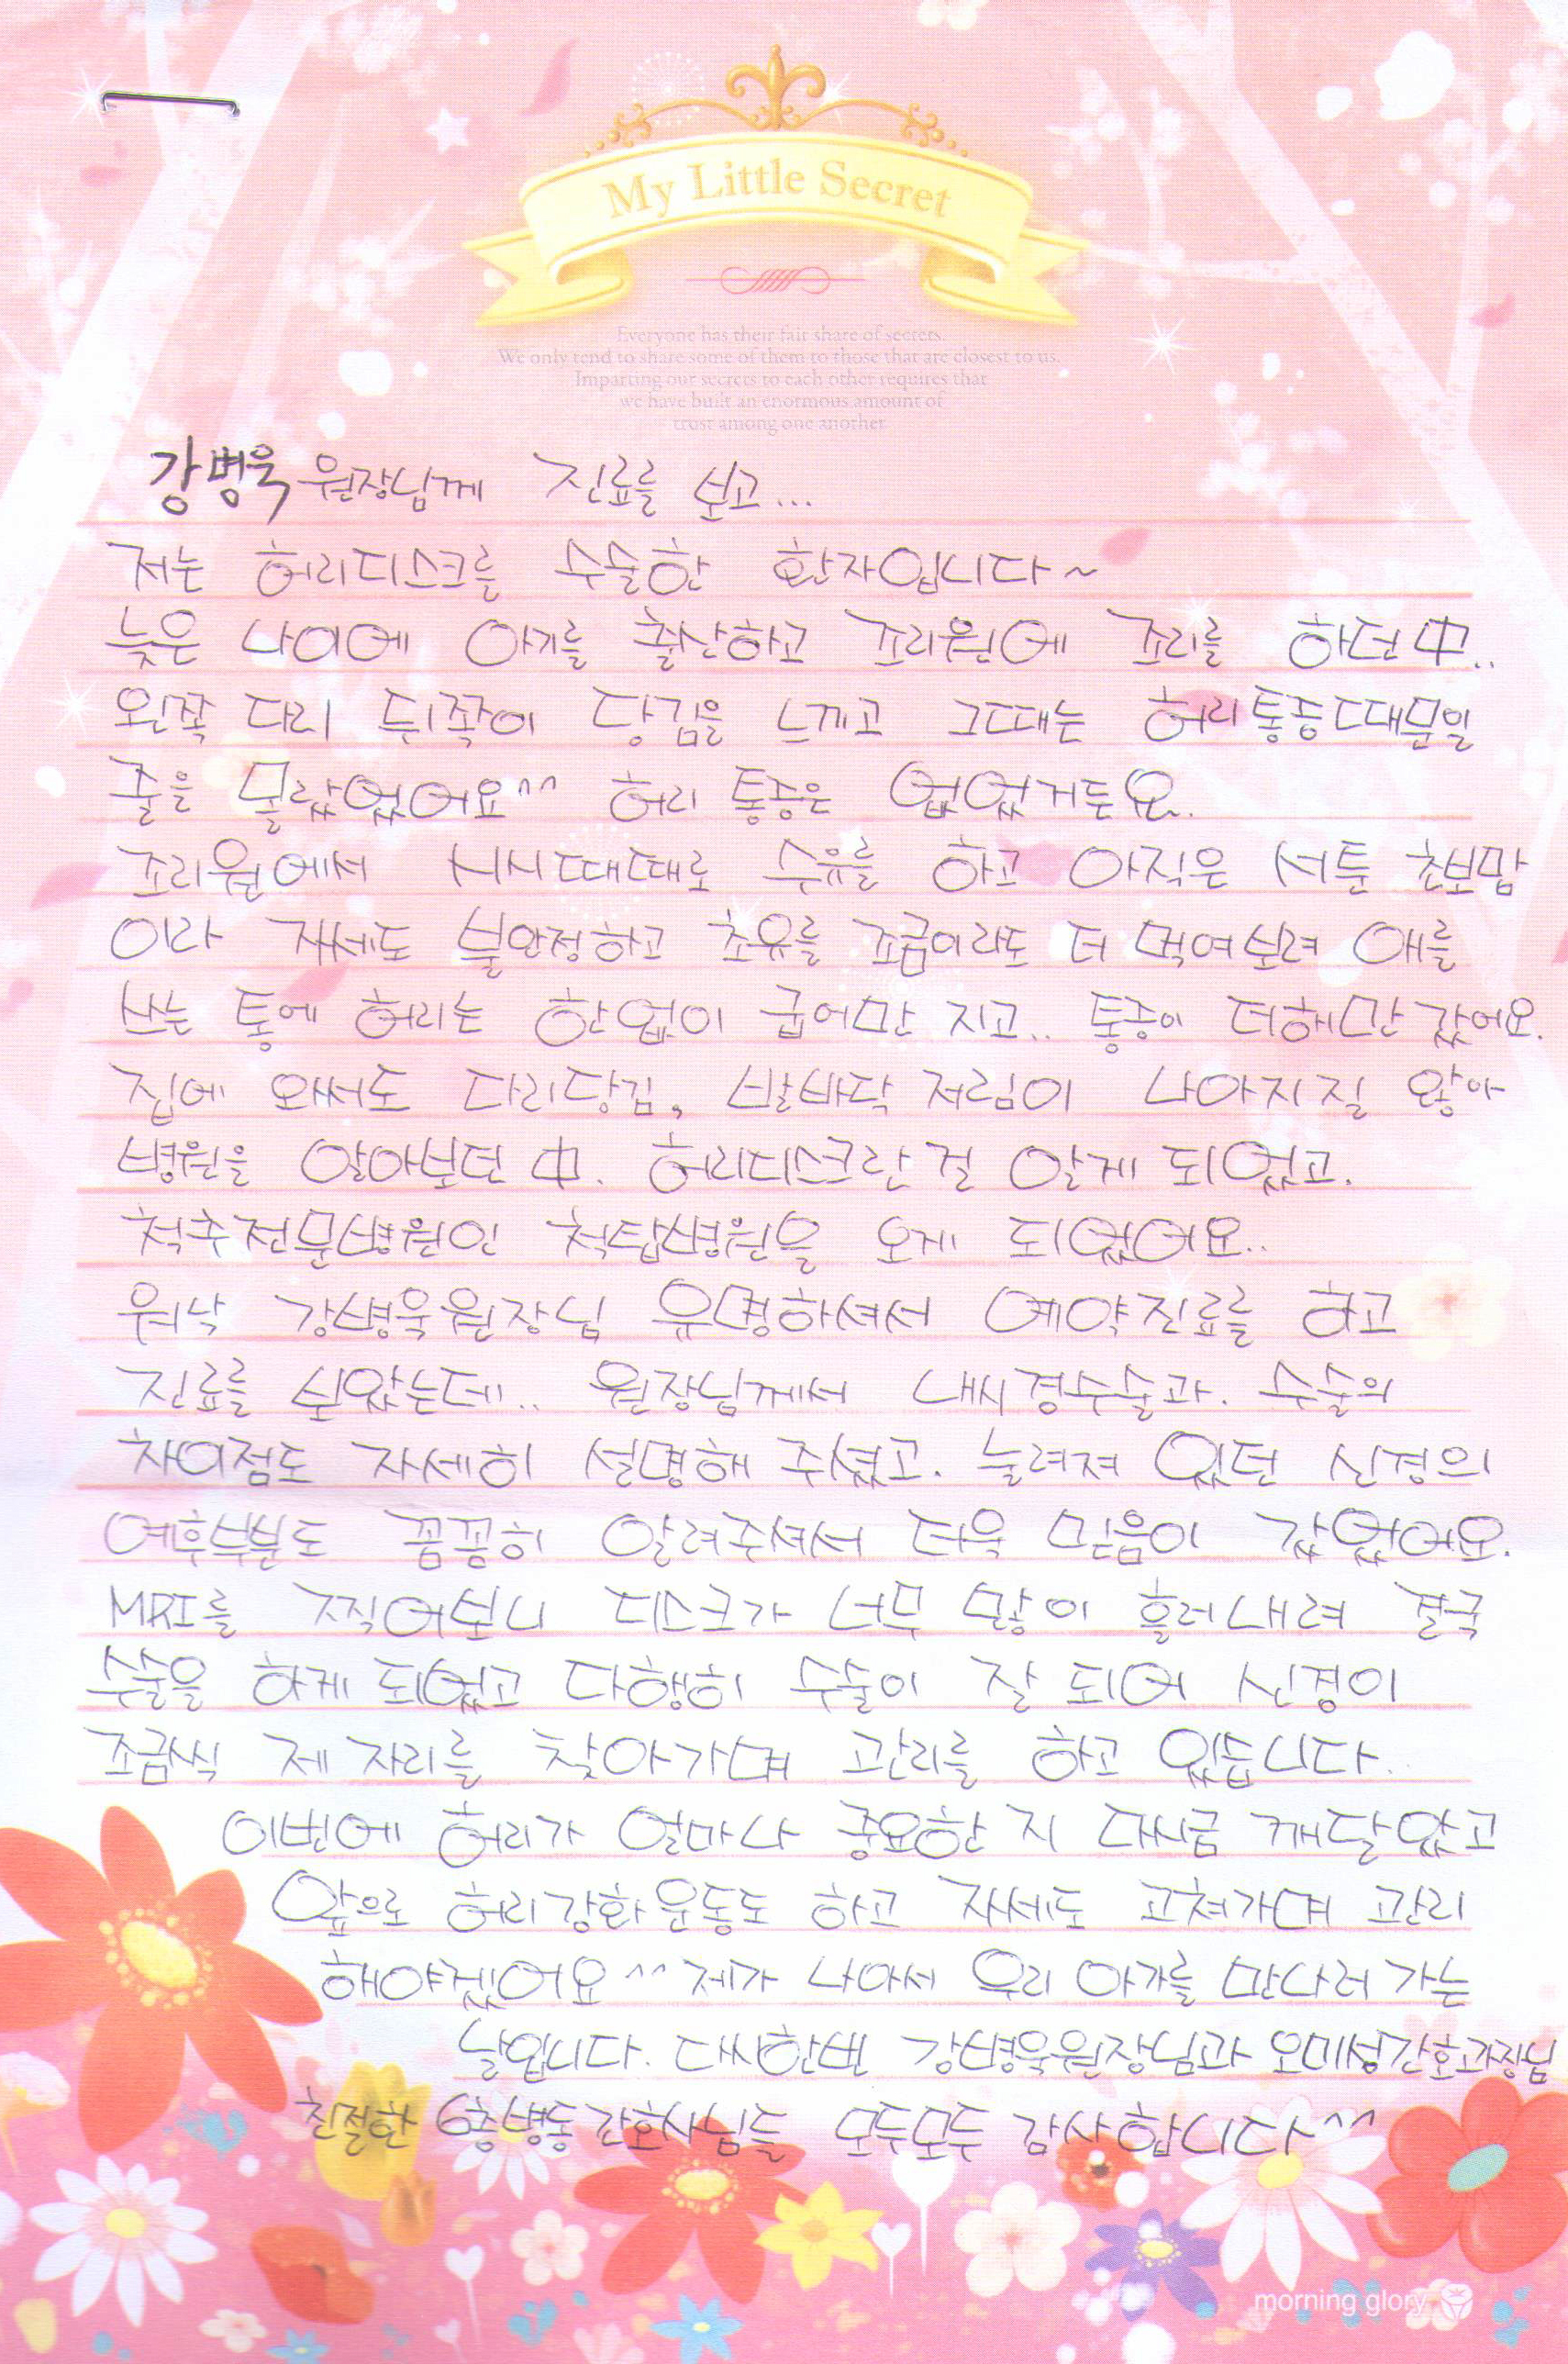 My Little Secret
Everyone has their fair share of secrets.
We only tend to share some of them to those that are closest to us.
Imparting our secrets to each other requires that
we have built an enormous amount of
trust among one another
강병욱 원장님께 진료를 보고...
저는 허리디스크를 수술한 환자입니다~
늦은 나이에 아기를 출산하고 조리원에 조리를 하던中..
왼쪽 다리 뒤쪽이 당김을 느끼고 그때는 허리통증때문일
줄을 몰랐었어요^^ 허리 통증은 없었거든요.
조리원에서 시시때때로 수유를 하고 아직은 서툰 초보맘
이라 자세도 불안정하고 초유를 조금이라도 더 먹여보려 애를
쓰는 통에 허리는 한없이 굽어만 지고.. 통증이 더해만 갔어요.
집에 와서도 다리당김, 발바닥 저림이 나아지질 않아
병원을 알아보던 中. 허리디스크란 걸 알게 되었고.
척추전문병원인 척탑병원을 오게 되었어요..
워낙 강병욱원장님 유명하셔서 예약진료를 하고
진료를 보았는데.. 원장님께서 내시경수술과. 수술의
차이점도 자세히 설명해 주셨고. 눌려져 있던 신경의
예후부분도 꼼꼼히 알려주셔서 더욱 믿음이 갔었어요.
MRI를 찍어보니 디스크가 너무 많이 흘러내려 결국
수술을 하게 되었고 다행히 수술이 잘 되어 신경이
조금씩 제 자리를 찾아가며 관리를 하고 있습니다.
이번에 허리가 얼마나 중요한 지 다시금 깨달았고
앞으로 허리강화운동도 하고 자세도 고쳐가며 관리
해야겠어요^^ 제가 나아서 우리 아가를 만나러 가는
날입니다. 다시한번 강병욱원장님과 오미성간호과장님
친절한 6층병동 간호사님들 모두모두 감사합니다^^
morning glory